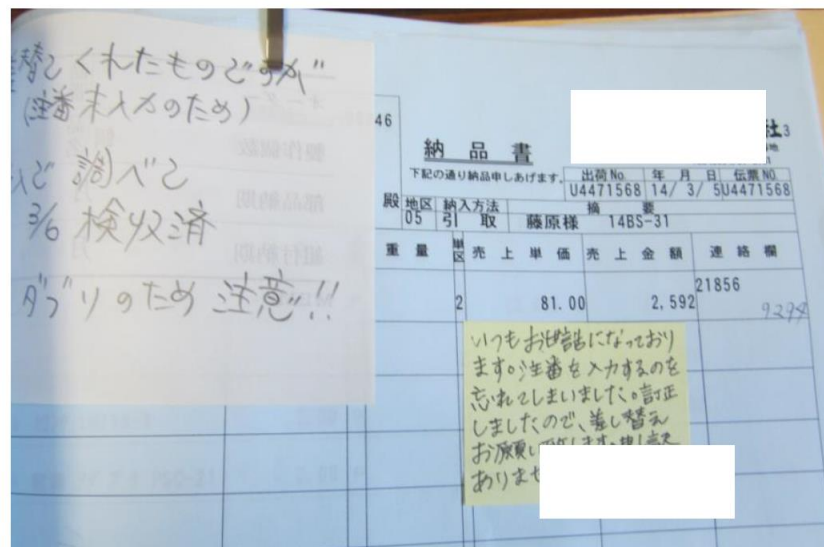 替てくれたものですが
(注番未入力のため)
で調べて
3/6 検収済
ダブリのため 注意!!
46
納品書
社3
下記の通り納品申しあげます。
出荷No. 年月日 伝票NO.
U4471568 14/ 3/ 5 U4471568
殿 地区 納入方法 摘要
05 引取 藤原様 14BS-31
重量 単区 売上単価 売上金額 連絡欄
21856
2 81.00 2,592
9294
いつもお世話になっており
ます。注番を入力するのを
忘れてしまいました。訂正
しましたので、差し替え
お願い致します。申し訳
ありませ